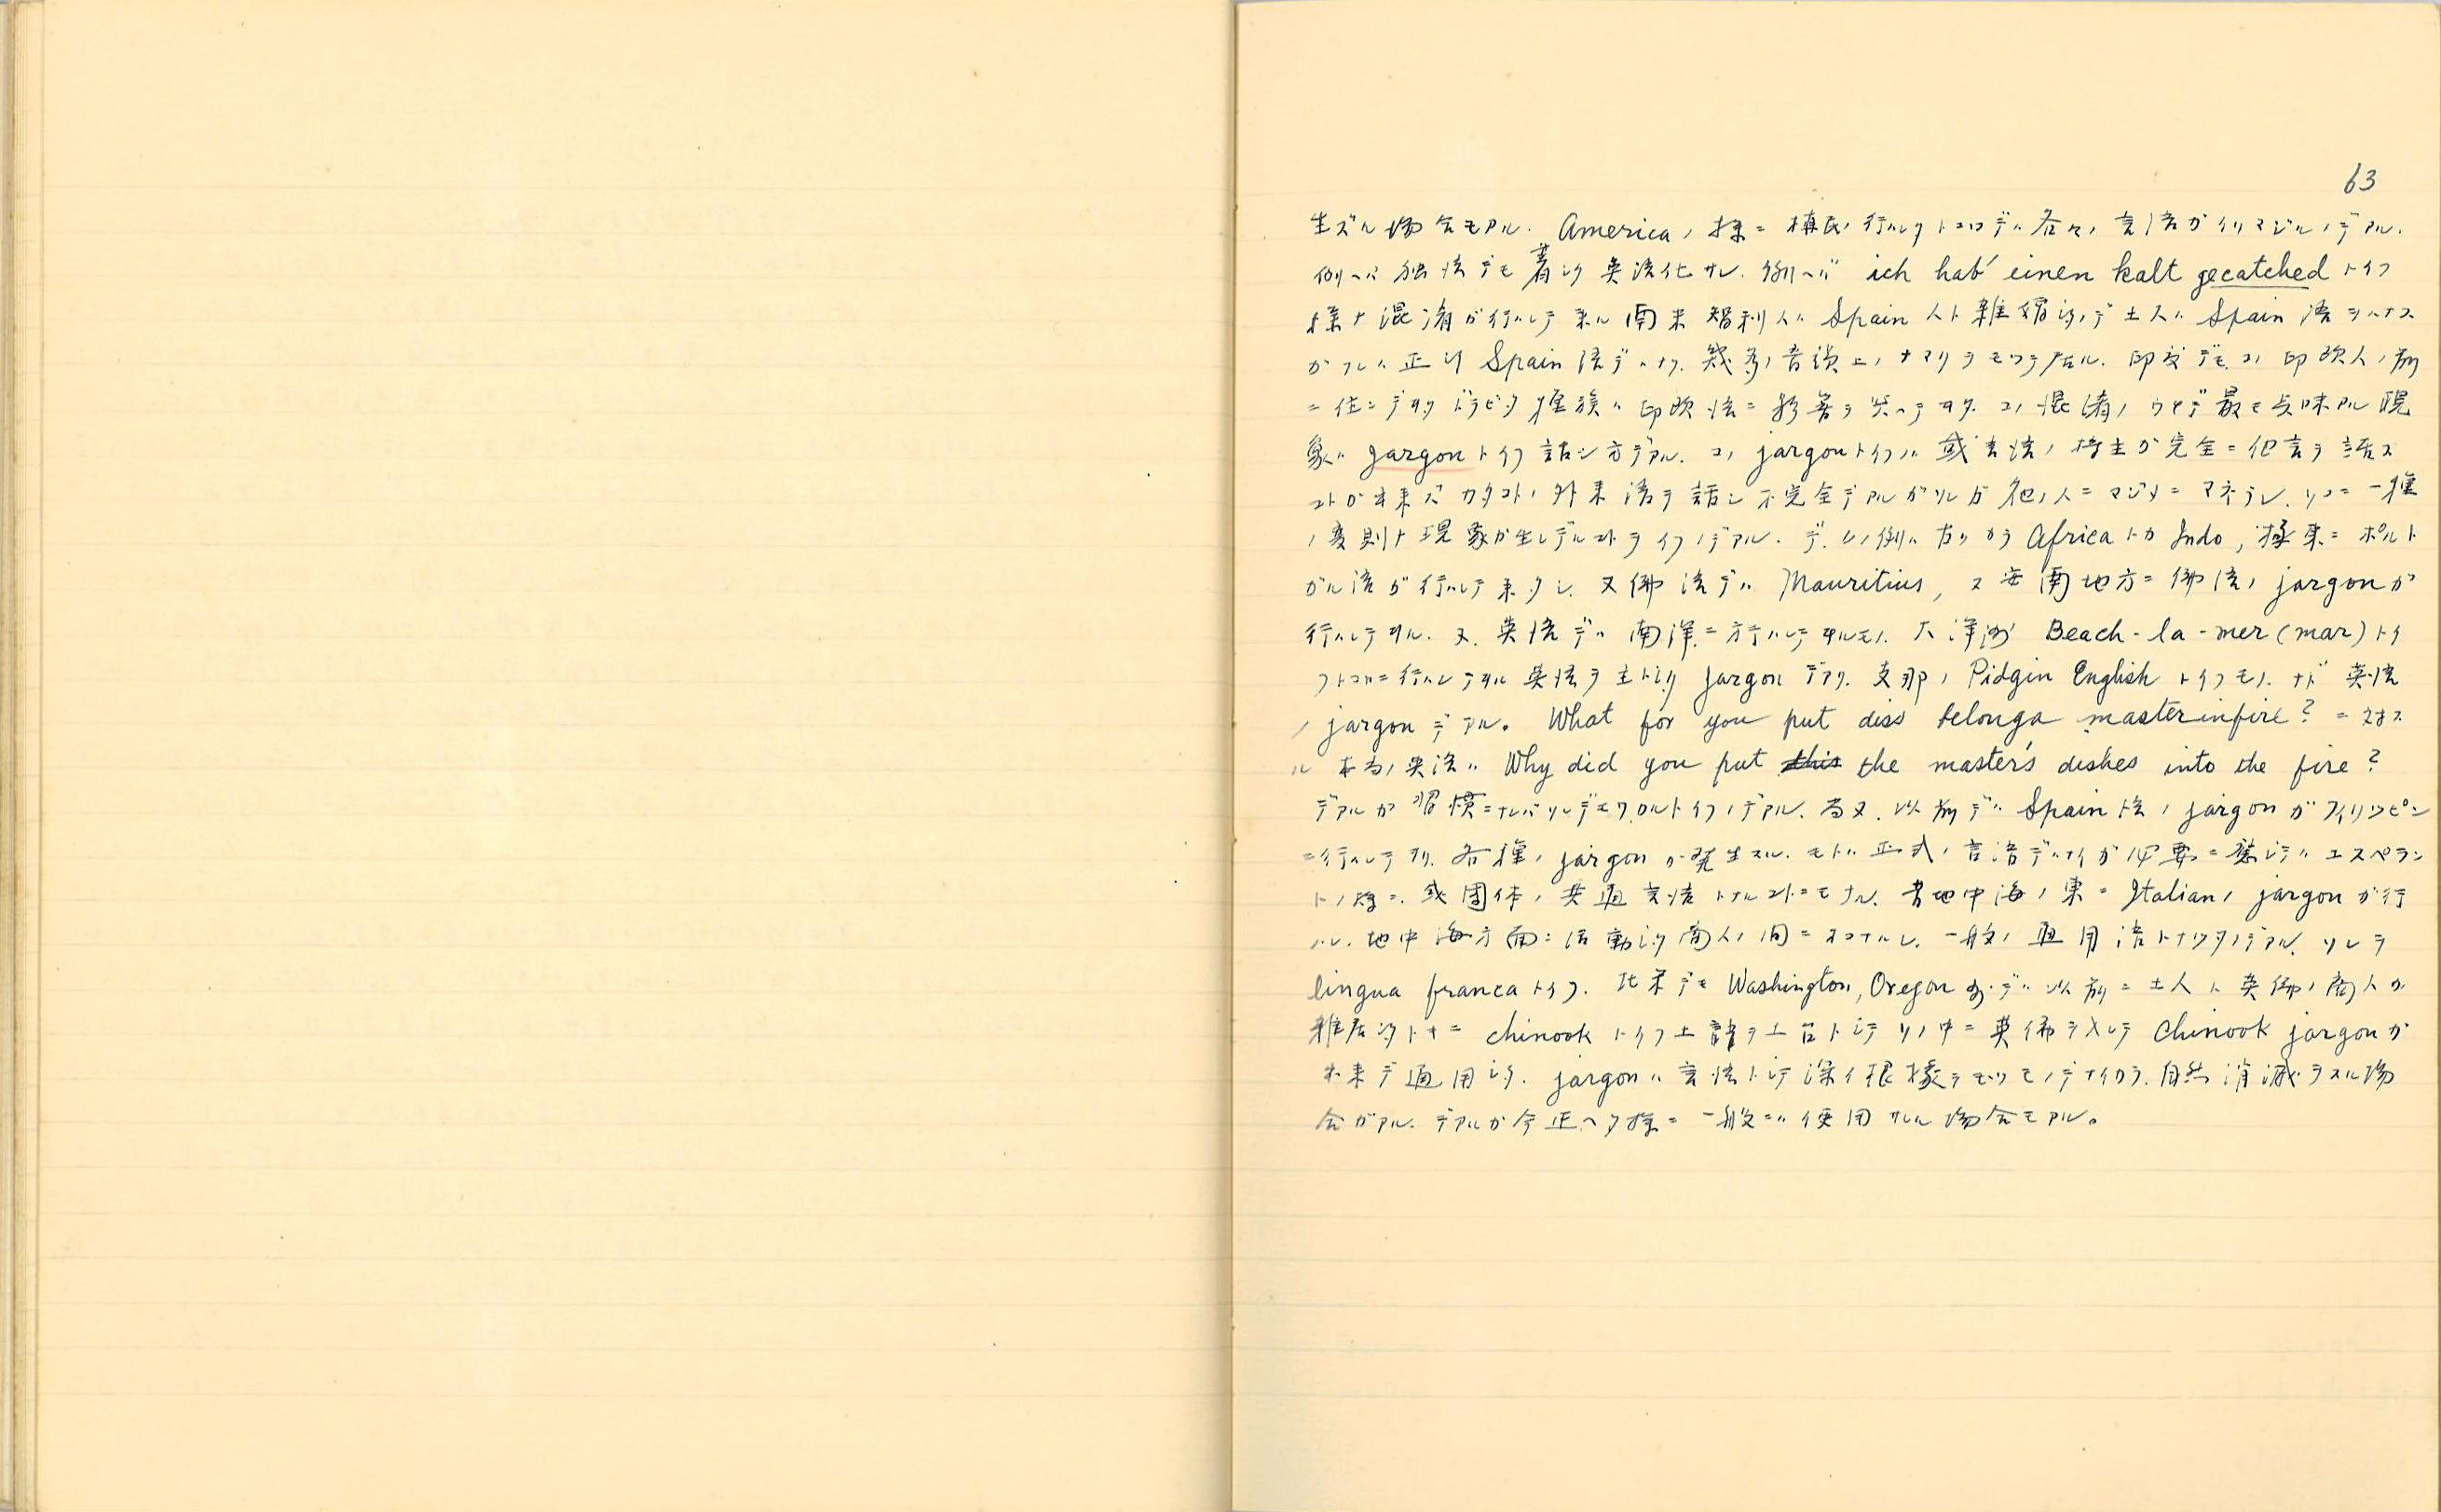 63
生ズル場合モアル. America ノ様ニ植民ノ行ハレタトコロデハ各々ノ言語ガイリマジルノデアル.
例ヘバ独語デモ著シク英語化サレ. 例ヘバ ich hab' einen kalt gecatched トイフ
様ナ混淆ガ行ハレテ来ル 南米智利人ハ Spain 人ト雑婚シタノデ土人ハ Spain 語ヲハナス
ガソレハ正シイ Spain 語デハナク. 幾多ノ音韻上ノナマリヲモツテ居ル. 印度デモコノ印欧人ノ前
ニ住ンデヰタドラビダ種族ハ印欧語ニ影響ヲ与ヘテヰタ. コノ混淆ノウチデ最モ興味アル現
象ハ jargon トイフ話シ方デアル. コノ jargon トイフノハ或言語ノ持主ガ完全ニ他言ヲ話ス
コトガ出来ズカタコトノ外来語ヲ話シ不完全デアルガソレガ他ノ人ニマジメニマネラレ. ソコニ一種
ノ変則ナ現象ガ生レデルコトヲイフノデアル. デ. ソノ例ハ古クカラ Africa トカ Indo, 極東ニポルト
ガル語ガ行ハレテ来タシ. 又佛語デハ Mauritius, 又安南地方ニ佛語ノ jargon ガ
行ハレテヰル. 又. 英語デハ南洋ニ行ハレテヰルモノ. 大洋洲 Beach-la-mer (mar) トイ
フトコロニ行ハレテヰル英語ヲ主トシタ jargon デアリ. 支那ノ Pidgin English トイフモノナド英語
ノ jargon デアル。 What for you put diss belonga masterinfire? ニ対ス
ル本当ノ英語ハ Why did you put the master's dishes into the fire?
デアルガ習慣ニナレバソレデモワカルトイフノデアル. 尚又. 以前デハ Spain 語ノ jargon ガフィリッピン
ニ行ハレテヰタ. 各種ノ jargon ガ発生スル. モトハ正式ノ言語デハナイガ必要ニ應ジテハエスペラン
トノ様ニ. 或団体ノ共通言語トナルコトニモナル. 昔地中海ノ東ニ Italian ノ jargon ガ行
ハレ. 地中海方面ニ活動シタ商人ノ間ニオコナハレ. 一般ノ通用語トナツタノデアル. ソレヲ
lingua franca トイフ. 北米デモ Washington, Oregon 州デハ以前ニ土人ト英佛ノ商人ガ
雑居シタトキニ chinook トイフ土語ヲ土台トシテソノ中ニ英佛ヲ入レテ Chinook jargon ガ
出来デ通用シタ. jargon ハ言語トシテ深イ根據ヲモツモノデナイカラ. 自然消滅ヲスル場
合ガアル. デアルガ今述ベタ様ニ一般ニハ使用サレル場合モアル。